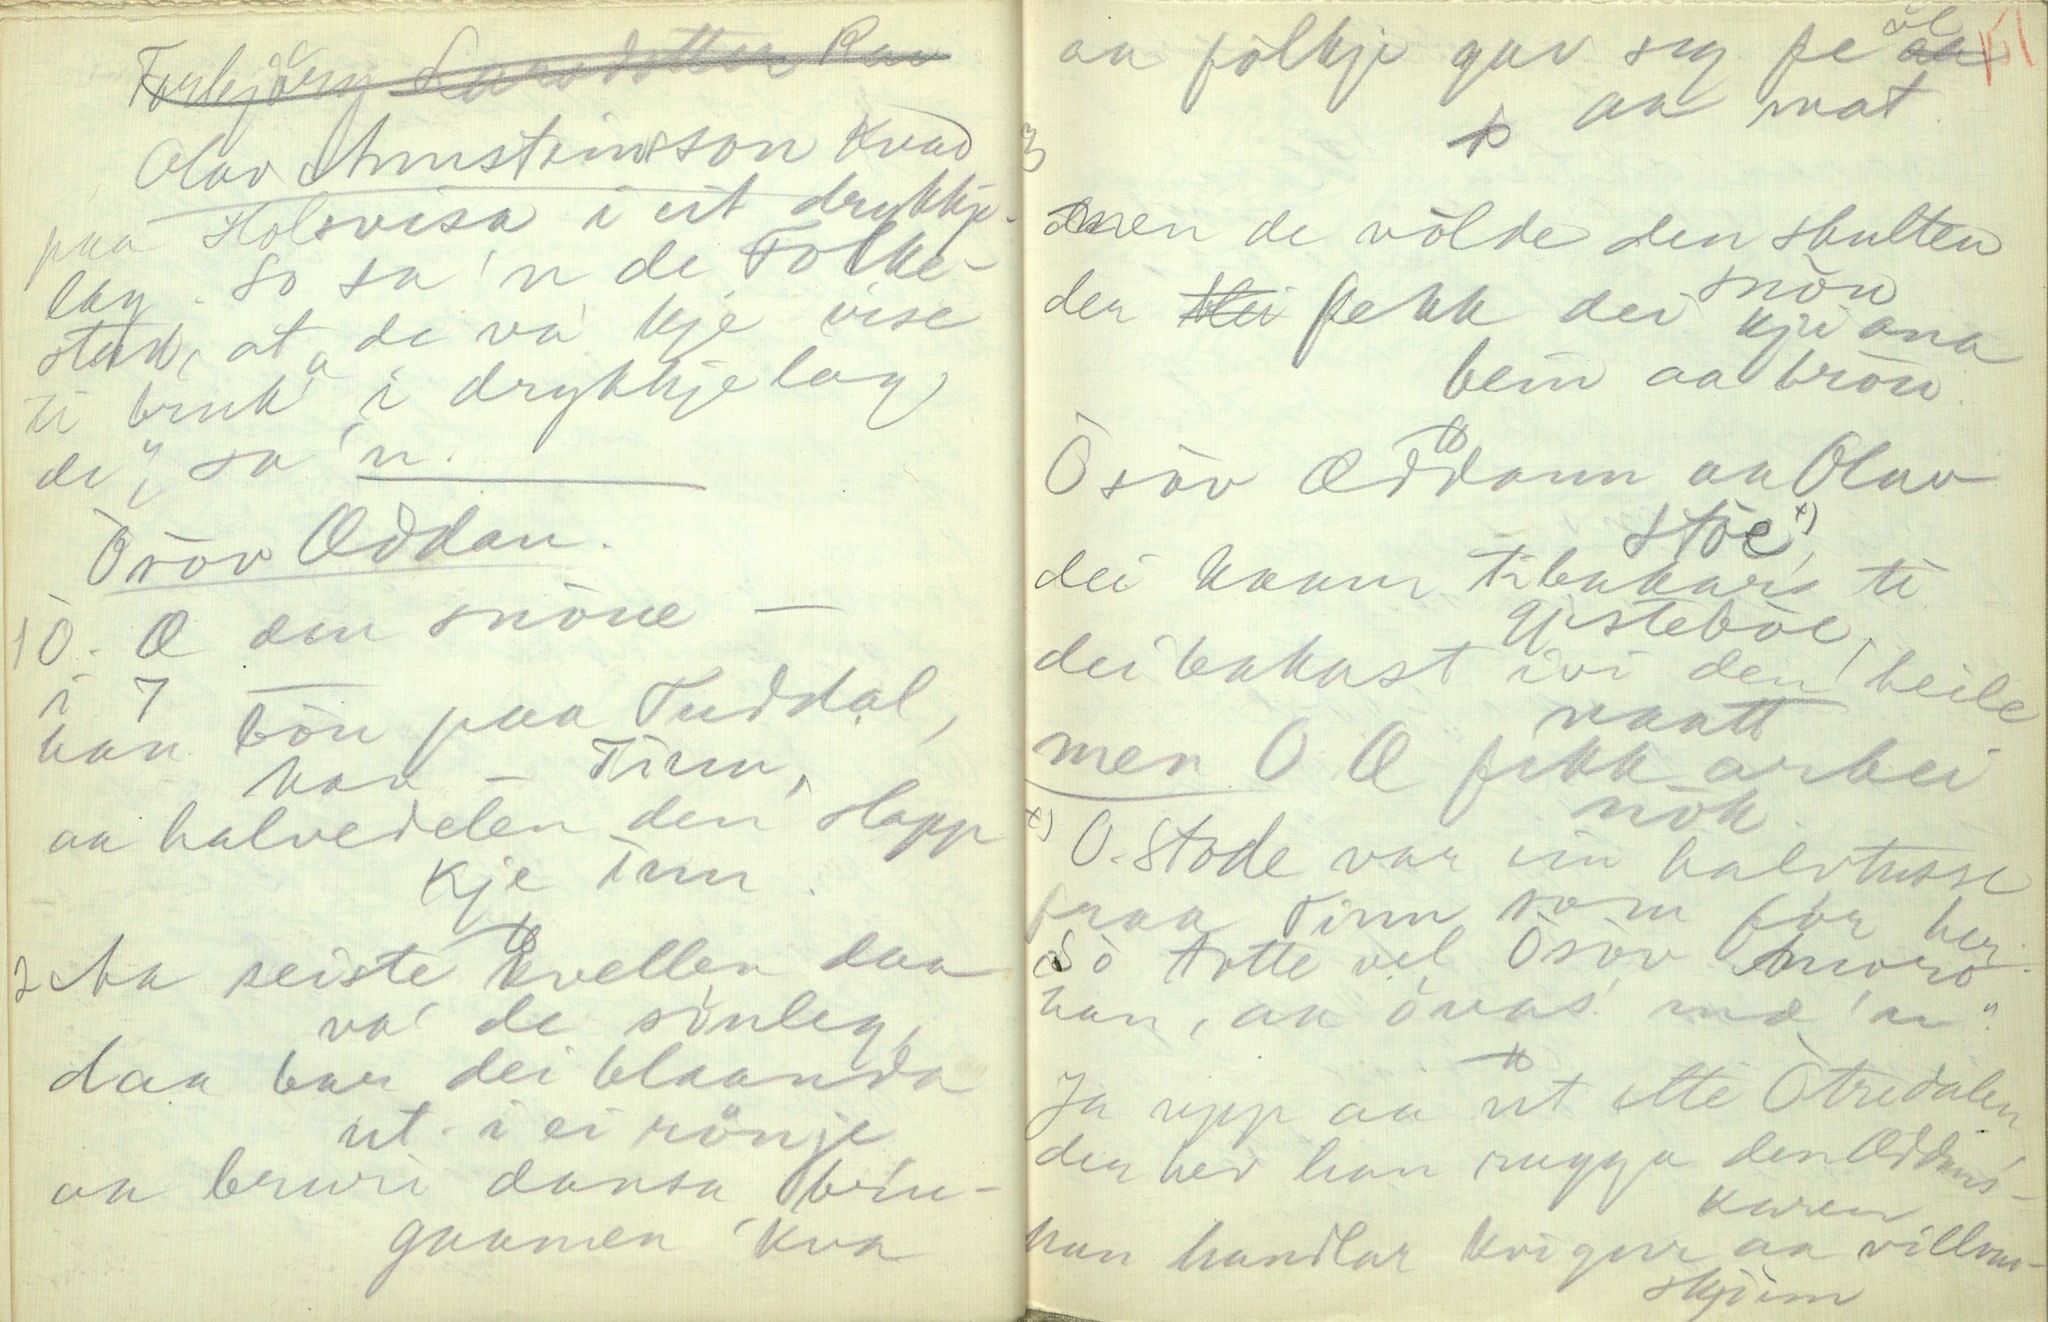 Torbjörg Larsdotter Rau
Olav Arnsteinsson kvad
paa Holsvisa i eit drykkje-
lag. So sa'n de Folke-
stad, at „de va' kje vise
ti bruk' i drykkjelag
de", sa'n.
Ösöv Œddan.
1 Ö. Œ den snöue —
i 7
han bön paa Tuddal,
han — Tinn,
aa halvedelen den slapp
kje inn.
2 Aa seiste kvellen daa
va' de sönleg,
daa bar dei blaanda
ut i ei rönje
aa bruri dansa brú-
gaamen kva
aa fölkje gav seg fe öl
aa mat.
3
men de völde den skulten
den fekk dei snöu
kje ana
bein aa bröu.
Ösöv Œddann aa Olav
Stöe x)
dei kaam tibakars ti
Gjsteböe,
dei bakast ivi den heile
naatt
men O Œ fekk arbei
nök.
x) O. Stode var ein halvtusse
fraa Tinn som för her.
So totte vel Ösöv
han, aa övas' mæ 'n".
Ja upp aa ut ette Ötredalen
den hev han rugga den Œddans-
karen
han handlar kvigur aa villmo-
skjinn